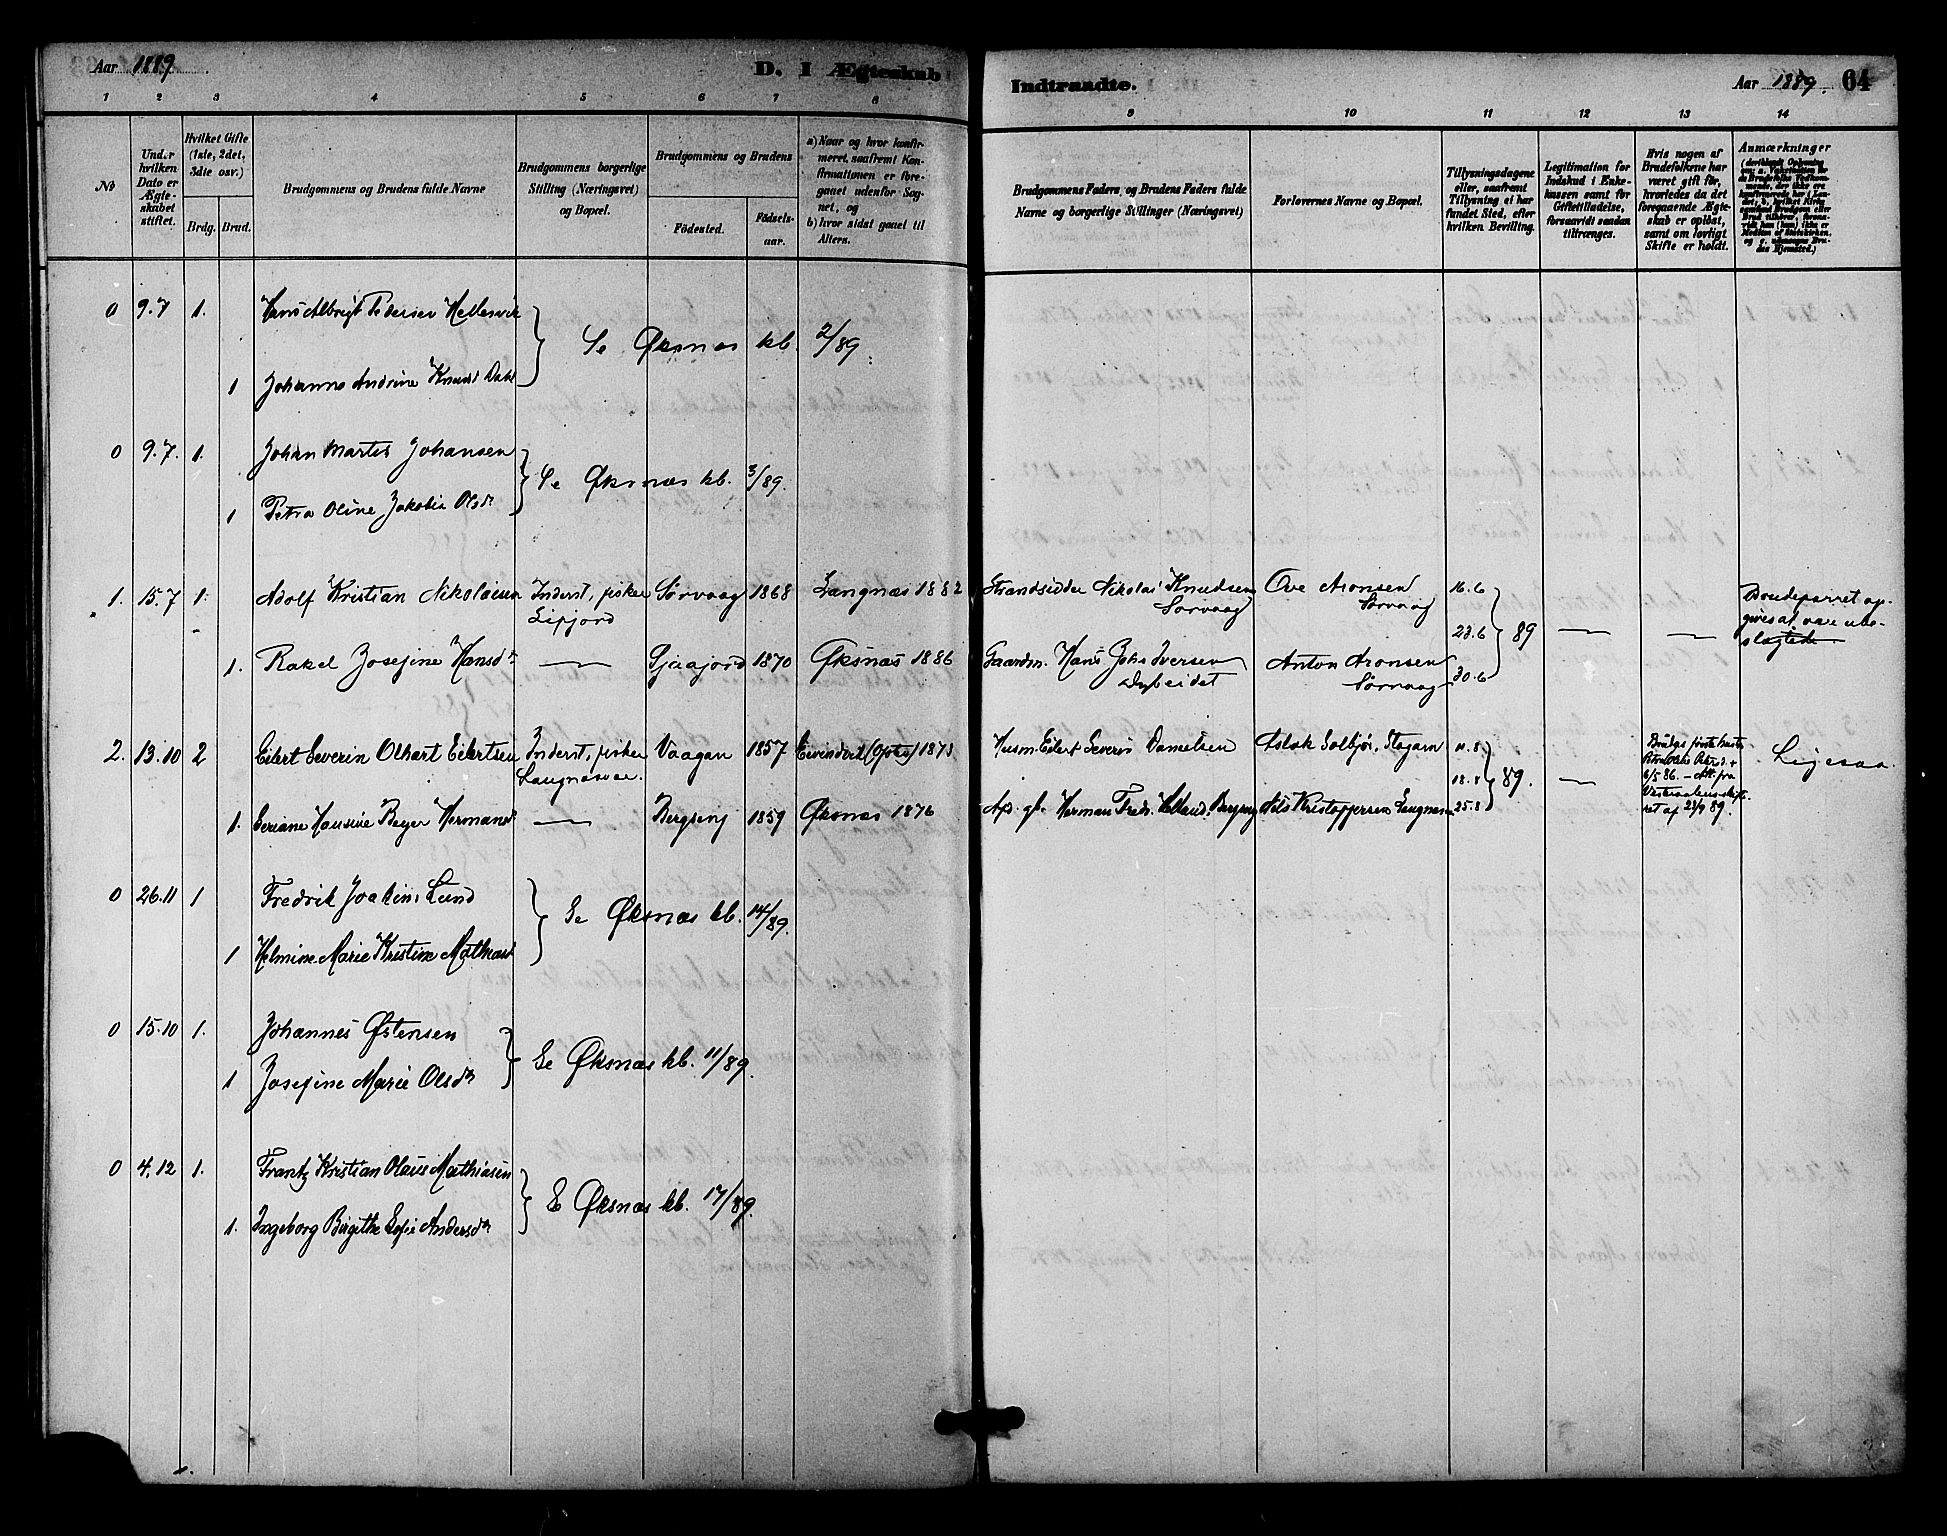 Aar 1889
D. I Ægteskab
Indtraadte.
Aar 1889. 64
1 2 3 4 5 6 7 8 9 10 11 12 13 14
No
Under hvilken Dato er Ægteskabet stiftet.
Hvilket Gifte (1ste, 2det, 3die osv.)
Brdg. Brud.
Brudgommens og Brudens fulde Navne
Brudgommens borgerlige Stilling (Næringsvei) og Bopæl.
Brudgommens og Brudens
Fødested.
Fødselsaar.
a) Naar og hvor konfirmeret, saafremt Konfirmationen er foregaaet udenfor Sognet, og
b) hvor sidst gaaet til Alters.
Brudgommens Faders, og Brudens Faders fulde Navne og borgerlige Stillinger (Næringsvei)
Forlovernes Navne og Bopæl.
Tillysningsdagene eller, saafremt Tillysning ei har fundet Sted, efter hvilken Bevilling.
Legitimation for Indskud i Enkekassen samt for Giftetilladelse, forsaavidt saadan tiltrænges.
Hvis nogen af Brudefolkene har været gift før, hvorledes da det foregaaende Ægteskab er opløst, samt om lovligt Skifte er holdt.
Anmærkninger
0 9.7 1. Hans Albrigt Pedersen Hellesvik
1 Johanna Andrine Knuds Dahl
Se Øksnæs kb. 2/89
0 9.7. 1. Johan Martin Johansen
1 Petra Oline Jakobie Olsdr
Se Øksnæs kb. 3/89.
1. 15.7 1. Adolf Kristian Nikolaisen Inderst, fisker Sørvaag 1868 Langnæs 1882 Strandsidder Nikolai Knudsen Ove Aronsen 16.6
Lifjord Sørvaag Sørvaag 23.6 89
1. Rakel Josefine Hansdr Sjaafjord 1870 Øksnæs 1886 Gaardm. Hans Johs Iversen Anton Aronsen 30.6
Dybeidet Sørvaag
Brudeparret opgives at være ubeslægtede
2. 13.10 2 Eilert Severin Olhart Eilertsen Inderst, fisker Vaagan 1857 Eivindvik (Opto) 1873 Husm. Eilert Severin Danielsen Aslak Solbjør, Stegarn 11.8
Langnæsvær 18.8 89.
1. Seriane Hansine Beyer Hermansd Bergseng 1859 Øksnæs 1876 Afd. gb. Herman Fredr. Helland, Bergseng Nils Kristoffersen Langnæs 25.8
Brudgs første hustru
6/5 86. – Att. fra
Vesteraalens skifteret af 23/9 89.
Ligesaa.
0 26.11 1 Fredrik Joakim Lund
1 Helmine Marie Kristine Mathiasd
Se Øksnæs kb. 14/89.
0 15.10 1. Johannes Østensen
1 Josefine Marie Olsdr
Se Øksnæs kb. 11/89.
0 4.12 1. Frantz Kristian Olaus Mathiasen
1. Ingeborg Birgithe Sofie Andersdr
Se Øksnæs kb. 17/89.